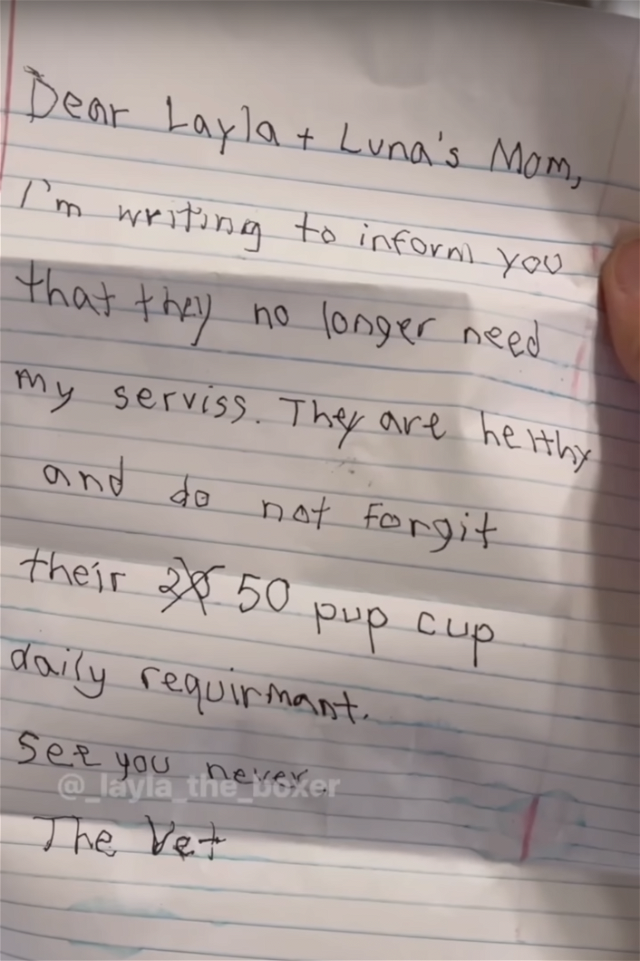 Dear Layla + Luna's Mom,
I'm writing to inform you
that they no longer need
my serviss. They are helthy
and do not forgit
their 50 pup cup
daily requirmant.
See you never.
@_layla_the_boxer
The Vet